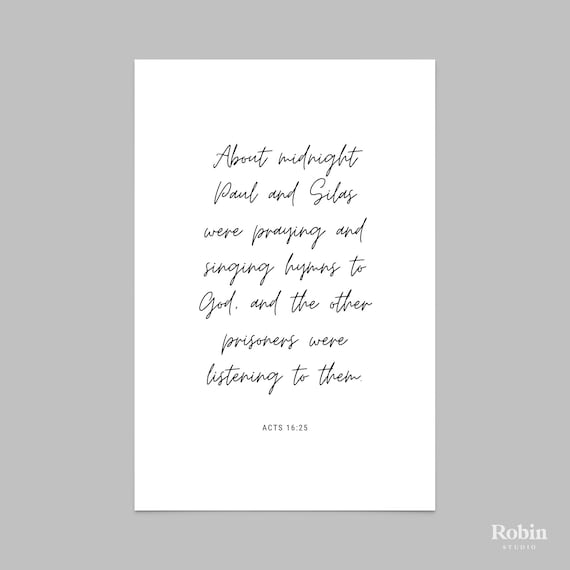 About midnight
Paul and Silas
were praying and
singing hymns to
God, and the other
prisoners were
listening to them.
ACTS 16:25
Robin
STUDIO